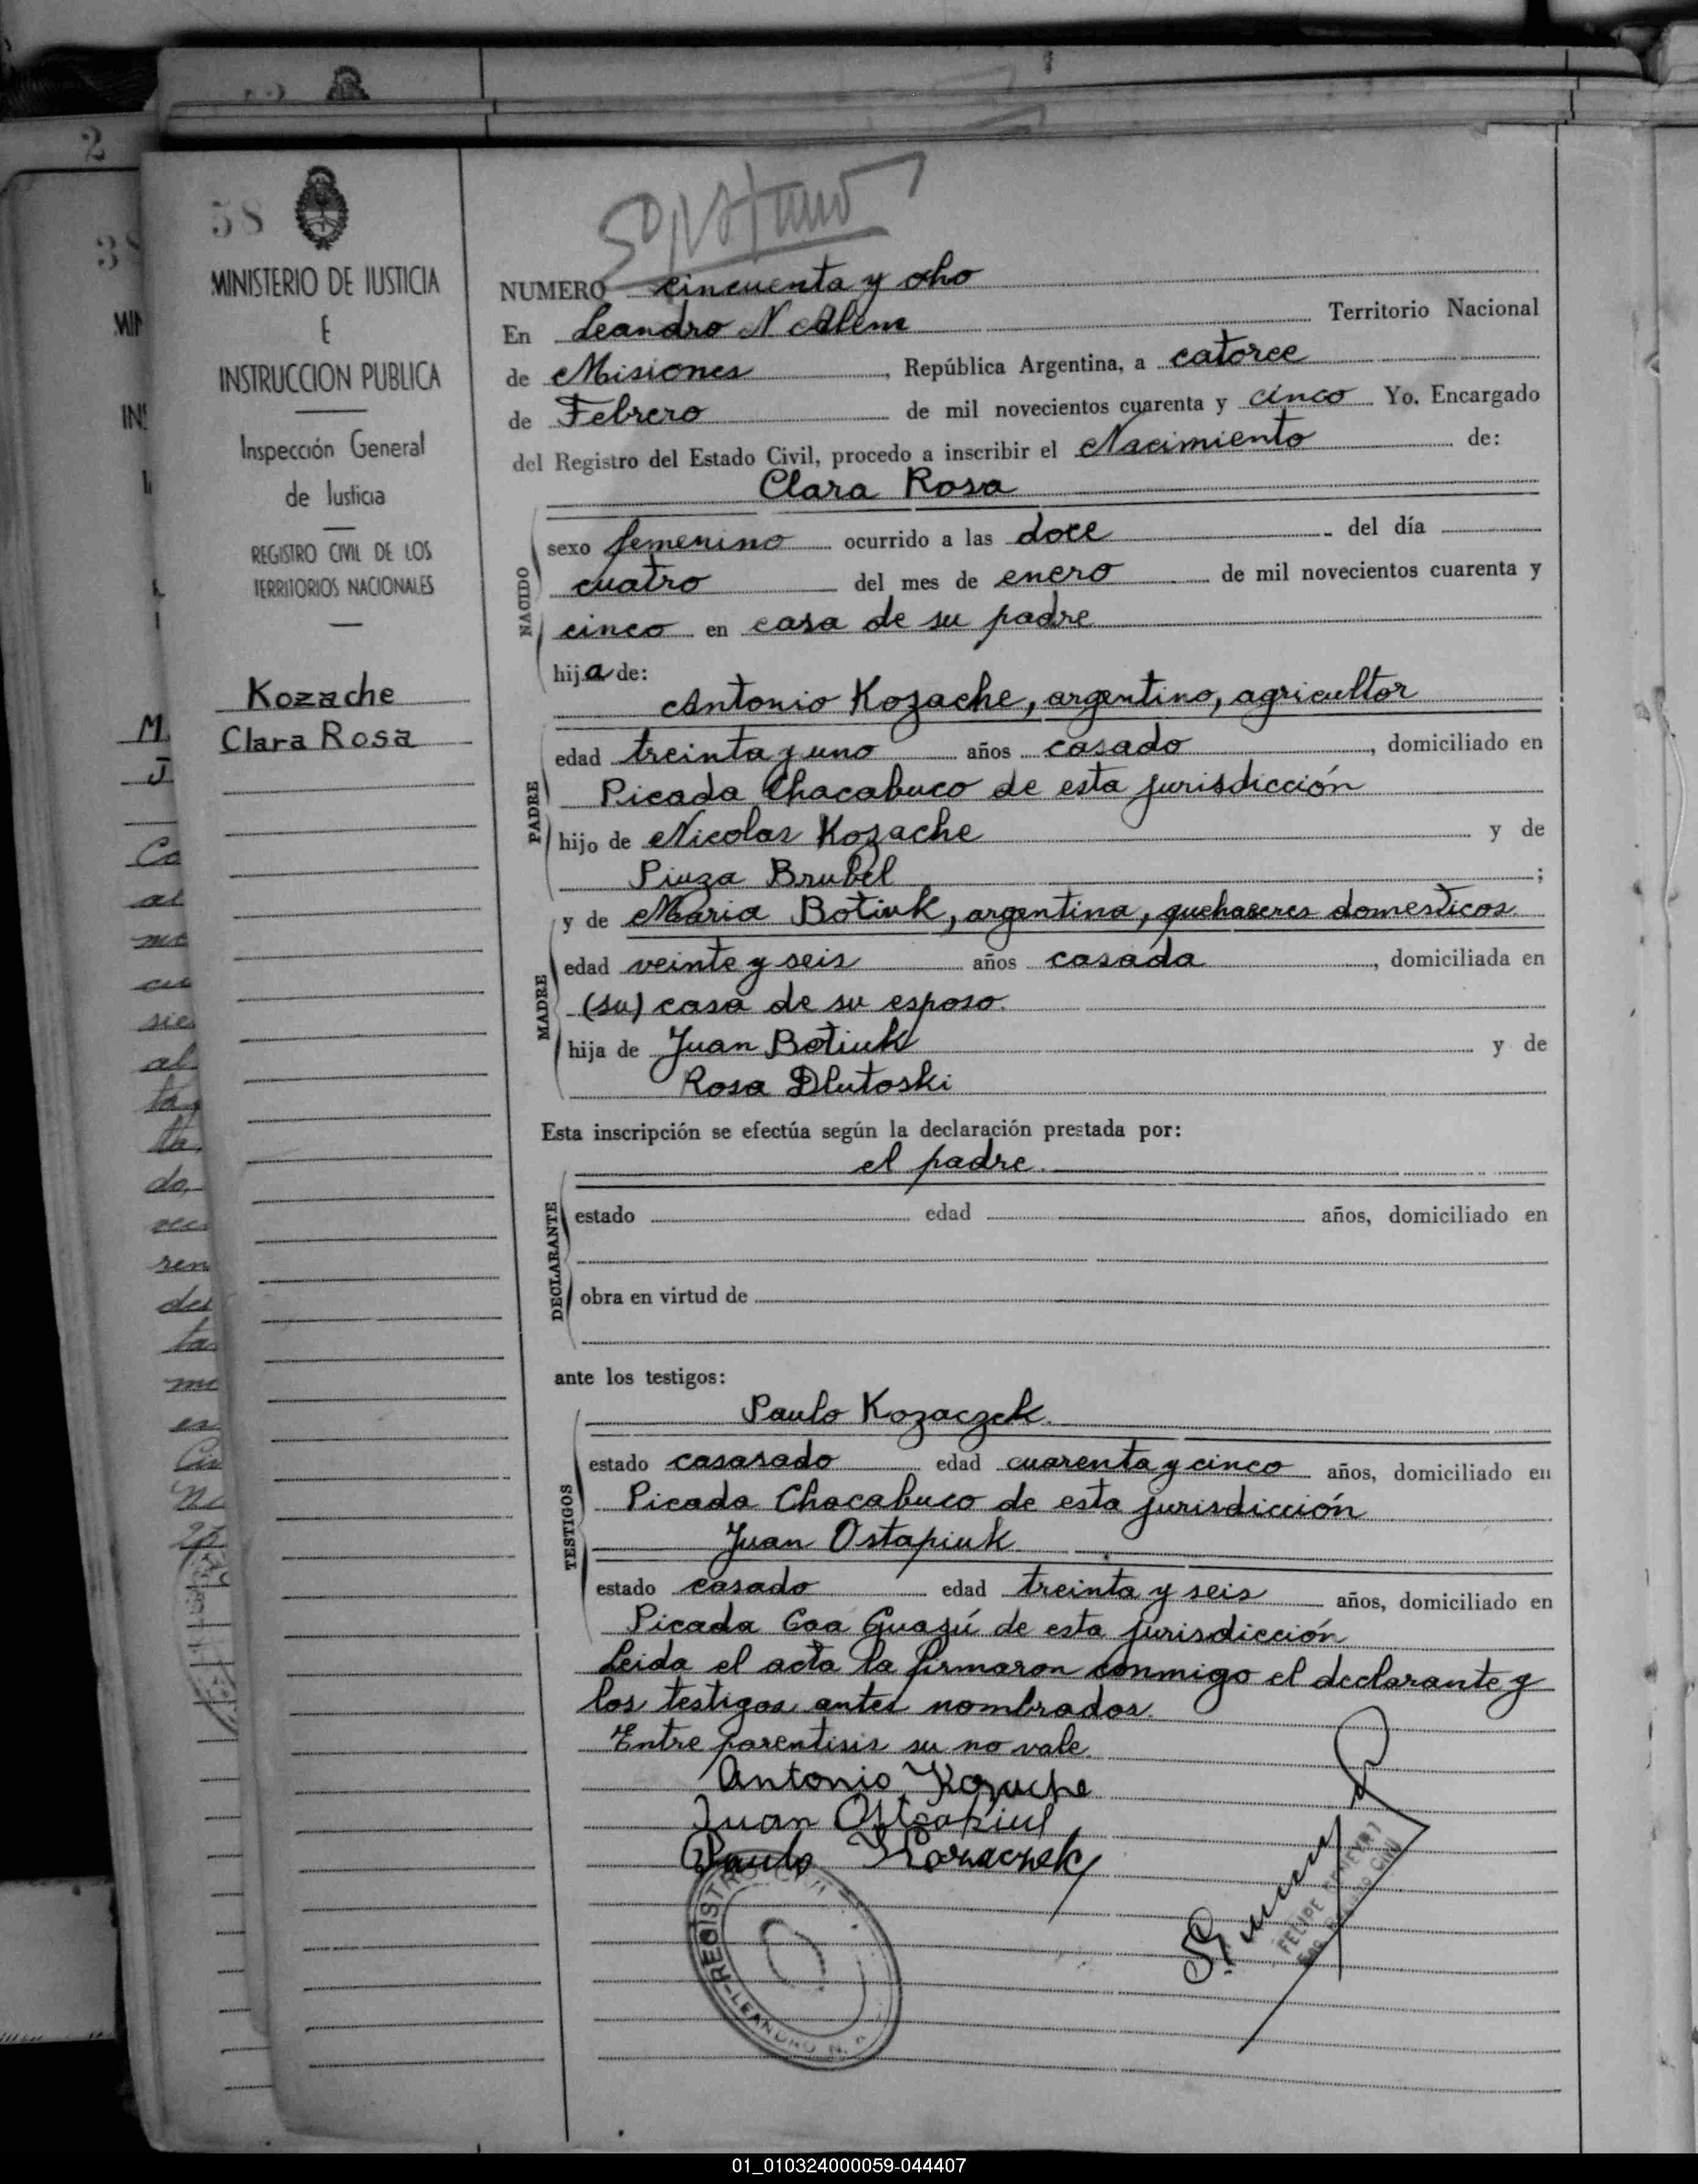 2
58
MINISTERIO DE JUSTICIA
E
INSTRUCCION PUBLICA
Inspección General
de Justicia
REGISTRO CIVIL DE LOS
TERRITORIOS NACIONALES
Kozache
Clara Rosa
NUMERO cincuenta y ocho
En Leandro N Alem Territorio Nacional
de Misiones, República Argentina, a catorce
de Febrero de mil novecientos cuarenta y cinco Yo, Encargado
del Registro del Estado Civil, procedo a inscribir el Nacimiento de:
Clara Rosa
NACIDO
sexo femenino ocurrido a las doce del día
cuatro del mes de enero de mil novecientos cuarenta y
cinco en casa de su padre
hija de:
Antonio Kozache, argentino, agricultor
PADRE
edad treinta y uno años casado, domiciliado en
Picada Chacabuco de esta jurisdicción
hijo de Nicolas Kozache y de
Piuza Brubel;
y de Maria Botiuk, argentina, quehaseres domesticos
MADRE
edad veinte y seis años casada, domiciliada en
(su) casa de su esposo.
hija de Juan Botiuk y de
Rosa Dlutoski
Esta inscripción se efectúa según la declaración prestada por:
el padre.
DECLARANTE
estado edad años, domiciliado en
obra en virtud de
ante los testigos:
Paulo Kozaczek.
TESTIGOS
estado casasado edad cuarenta y cinco años, domiciliado en
Picada Chacabuco de esta jurisdicción
Juan Ostapiuk
estado casado edad treinta y seis años, domiciliado en
Picada Caa Guazú de esta jurisdicción
Leida el acta la firmaron conmigo el declarante y
los testigos antes nombrados.
Entre parentisis su no vale.
Antonio Kozache
Juan Ostapiuk
Paulo Kozaczek
REGISTRO CIVIL
LEANDRO N.
FELIPE
01_010324000059-044407